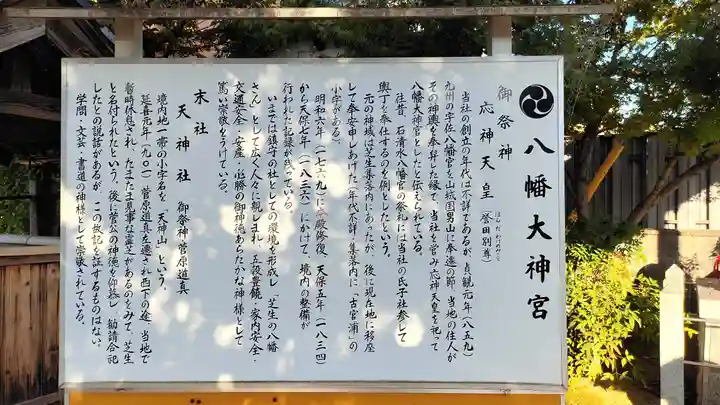 八幡大神宮
御祭神
応神天皇(誉田別尊)
ほんだわけのみこと
当社の創立の年代は不詳であるが、貞観元年(八五九)
九州の宇佐八幡宮を山城国男山に奉遷の節、当地の住人が
その神輿を奉舁した縁で、当社を営み応神天皇を祀って
八幡大神宮としたと伝えられている。
往昔、石清水八幡宮の祭礼には当社の氏子社参して
輿丁を奉仕するのを例としたという。
元の神域は芝生集落内にあったが、後に現在地に移座
して奉安申しあげた(年代不詳・集落内に「古宮浦」の
小字がある)。
明和六年(一七六九)に 殿修復、天保五年(一八三四)
から天保七年(一八三六)にかけて、境内の整備が
行われた記録が残っている。
いまでは鎮守の社としての環境を形成し「芝生の八幡
さん」として広く人々に親しまれ、五穀豊饒・家内安全・
交通安全・安産・必勝の御神徳あらたかな神様として
篤い崇敬をうけている。
末社
天神社 御祭神菅原道真
境内地一帯の小字名を「天神山」という。
延喜元年(九〇一)菅原道真左遷され西下の途、当地で
暫時休息され、たまたま見事な霊芝があるのをみて、芝生
と名付けられたという。後に菅公の神徳を仰慕し、勧請合祀
したとの説話があるが、この故記を証するものはない。
学問・文芸・書道の神様として崇敬されている。